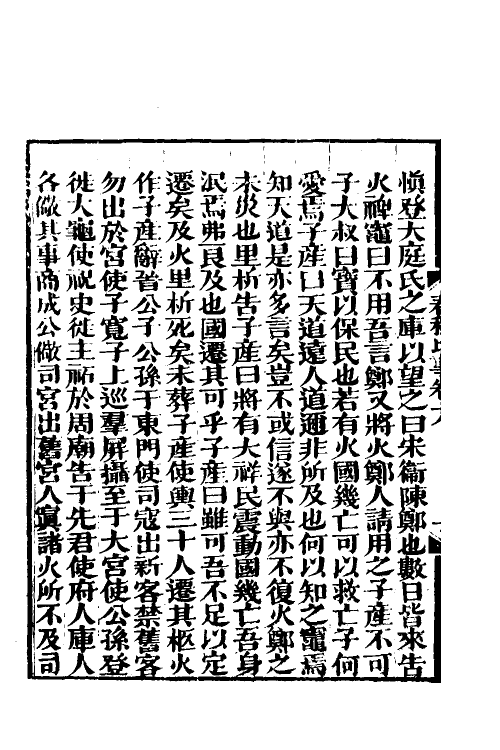 愼登大庭氏之庫以望之曰宋衞陳鄭也數日皆來告
火裨竈曰不用吾言鄭又將火鄭人請用之子產不可
子大叔曰寶以保民也若有火國幾亡可以救亡子何
愛焉子產曰天道遠人道邇非所及也何以知之竈焉
知天道是亦多言矣豈不或信遂不與亦不復火鄭之
未災也里析告子產曰將有大祥民震動國幾亡吾身
泯焉弗良及也國遷其可乎子產曰雖可吾不足以定
遷矣及火里析死矣未葬子產使輿三十人遷其柩火
作子產辭晉公子公孫于東門使司寇出新客禁舊客
勿出於宮使子寬子上巡羣屏攝至于大宮使公孫登
徙大龜使祝史徙主祏於周廟告于先君使府人庫人
各儆其事商成公儆司宮出舊宮人寘諸火所不及司